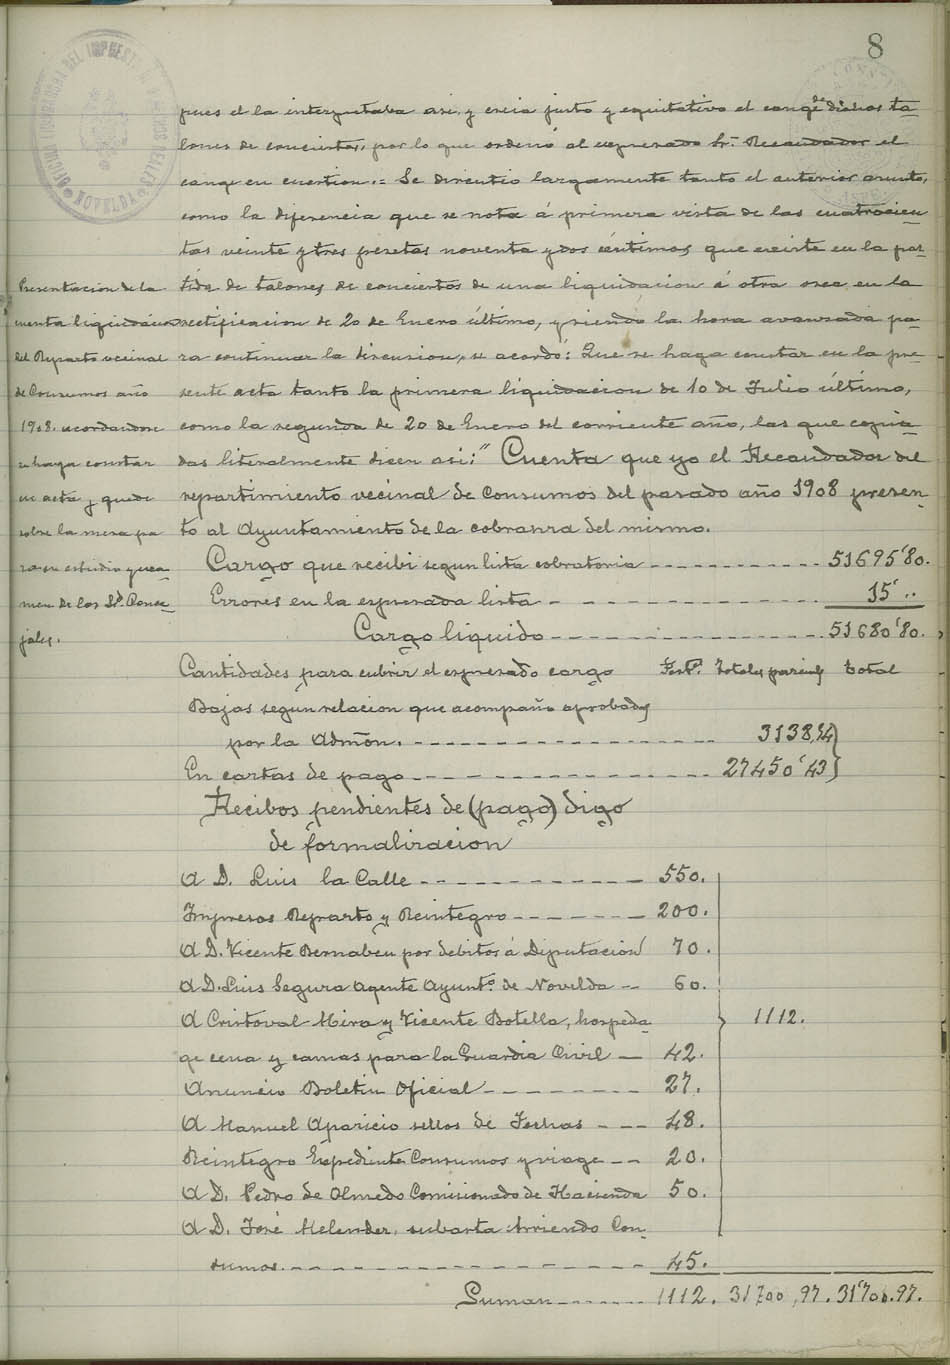 8
pues el la interpretaba asi, y creia justo y equitativo el cange de dichos ta-
lones de conciertos, por lo que ordenó al expresado Sr. Recaudador el
cange en cuestion.= Se discutio largamente tanto el anterior asunto,
como la diferencia que se nota á primera vista de las cuatrocien-
tas veinte y tres pesetas noventa y dos céntimos, que existe en la par-
tida de talones de conciertos de una liquidacion á otra osea en la
rectificacion de 20 de Enero último, y siendo la hora avanzada pa-
ra continuar la discusion, se acordó: Que se haga constar en la pre-
sente acta tanto la primera liquidacion de 10 de Julio último,
como la segunda de 20 de Enero del corriente año, las que copia-
das literalmente dicen asi:" Cuenta que yo el Recaudador del
repartimiento vecinal de Consumos del pasado año 1908 presen-
to al Ayuntamiento de la cobranza del mismo.
Presentacion de la
cuenta liquidacion
del Reparto vecinal
de Consumos año
1908. acordandose
se haga constar
en acta y quede
sobre la mesa pa
ra su estudio y exa-
men de los Srs. Conce-
jales.
Cargo que recibi segun lista cobratoria ----------- 51695'80.
Errores en la expresada lista - ----------- 15'..
Cargo liquido ----------- 51680'80.
Cantidades para cubrir el expresado cargo Pests. Totales parciales total
Bajas segun relacion que acompaño aprobadas
por la Admón. ----------- 3138,54
En cartas de pago ----------- 27450'43
Recibos pendientes de (pago) digo
de formalizacion
A D. Luis la Calle -------- 550.
Impresos Reparto y Reintegro ------ 200.
A D. Vicente Bernabeu por debitos á Diputacion 70.
A D. Luis Segura Agente Ayuntº. de Novelda -- 60.
A Cristoval Mira y Vicente Botella, hospeda- 1112.
ge cena y camas para la Guardia Civil -- 42.
Anuncio Boletin Oficial -------- 27.
A Manuel Aparicio sellos de fechas --- 48.
Reintegro Expediente Consumos y viage -- 20.
A D. Pedro de Olmedo Comisionado de Hacienda 50.
A D. José Melender, subasta Arriendo Con-
sumos. ----------- 45.
Suman ------ 1112. 31700,97. 31'700.97.